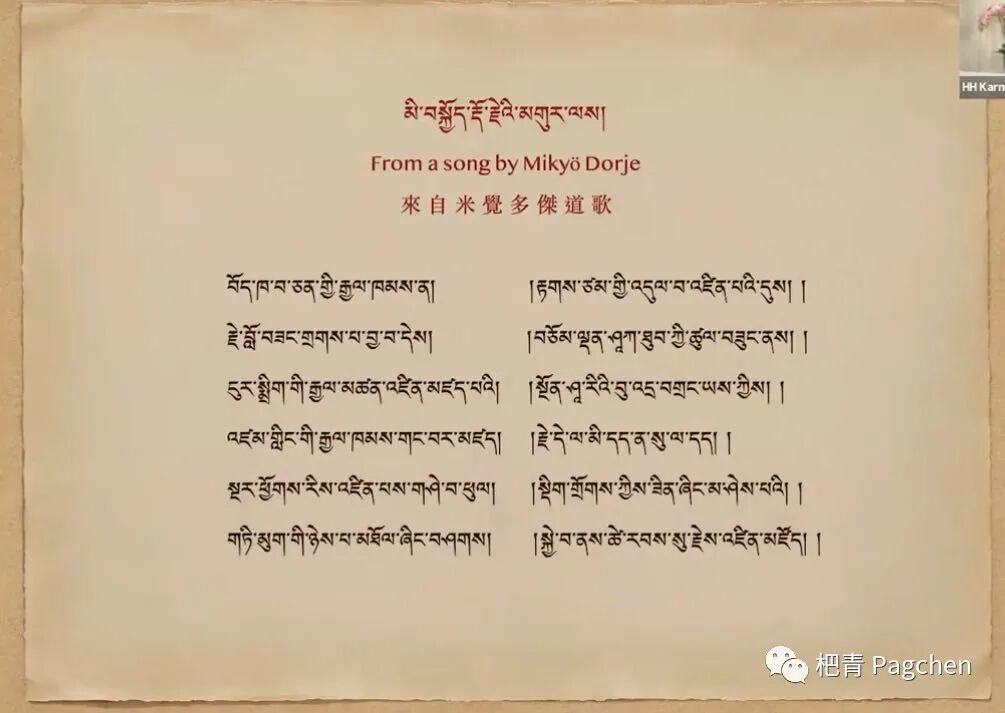 མི་བསྐྱོད་རྡོ་རྗེའི་མགུར་ལས།
From a song by Mikyö Dorje
來自米覺多傑道歌
བོད་ཁ་བ་ཅན་གྱི་རྒྱལ་ཁམས་ན། །རྟགས་ཙམ་གྱི་འདུལ་བ་འཛིན་པའི་དུས། །
རྗེ་བློ་བཟང་གྲགས་པ་བྱ་བ་དེས། །བཅོམ་ལྡན་ཤཱཀ་ཐུབ་ཀྱི་ཚུལ་བཟུང་ནས། །
ངུར་སྨྲིག་གི་རྒྱལ་མཚན་འཛིན་མཛད་པའི། །སྔོན་ཤཱ་རིའི་བུ་འདྲ་བགྲང་ཡས་ཀྱིས། །
འཛམ་གླིང་གི་རྒྱལ་ཁམས་གང་བར་མཛད། །རྗེ་དེ་ལ་མི་དད་ན་སུ་ལ་དད། །
སྔར་ཕྱོགས་རིས་འཛིན་པས་གཤེ་བ་ཕུལ། །སྡིག་གྲོགས་ཀྱིས་ཟིན་ཞིང་མ་ཤེས་པའི། །
གཏི་མུག་གི་ཉེས་པ་མཐོལ་ཞིང་བཤགས། །སྐྱེ་བ་ནས་ཚེ་རབས་སུ་རྗེས་འཛིན་མཛོད། །
HH Karm
杷青 Pagchen